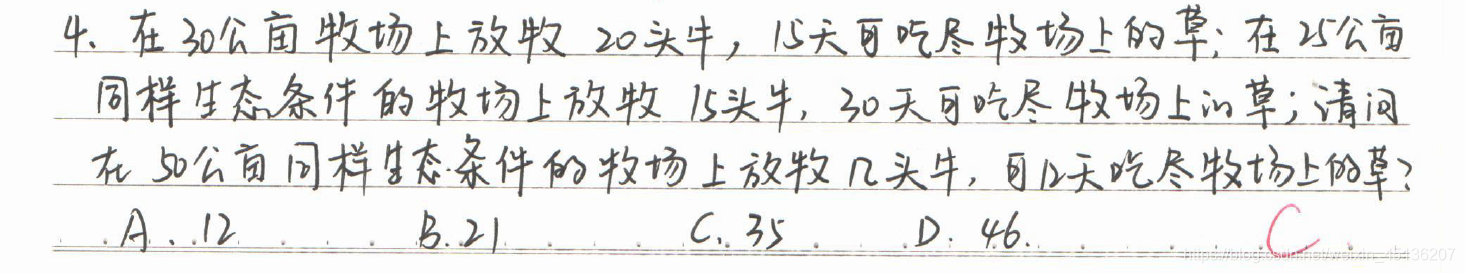 4、在30公亩牧场上放牧 20头牛，15天可吃尽牧场上的草；在25公亩
同样生态条件的牧场上放牧 15头牛，30天可吃尽牧场上的草；请问
在50公亩同样生态条件的牧场上放牧几头牛，可12天吃尽牧场上的草？
A. 12 B. 21 C. 35 D. 46. C
https://blog.csdn.net/weixin_45136207